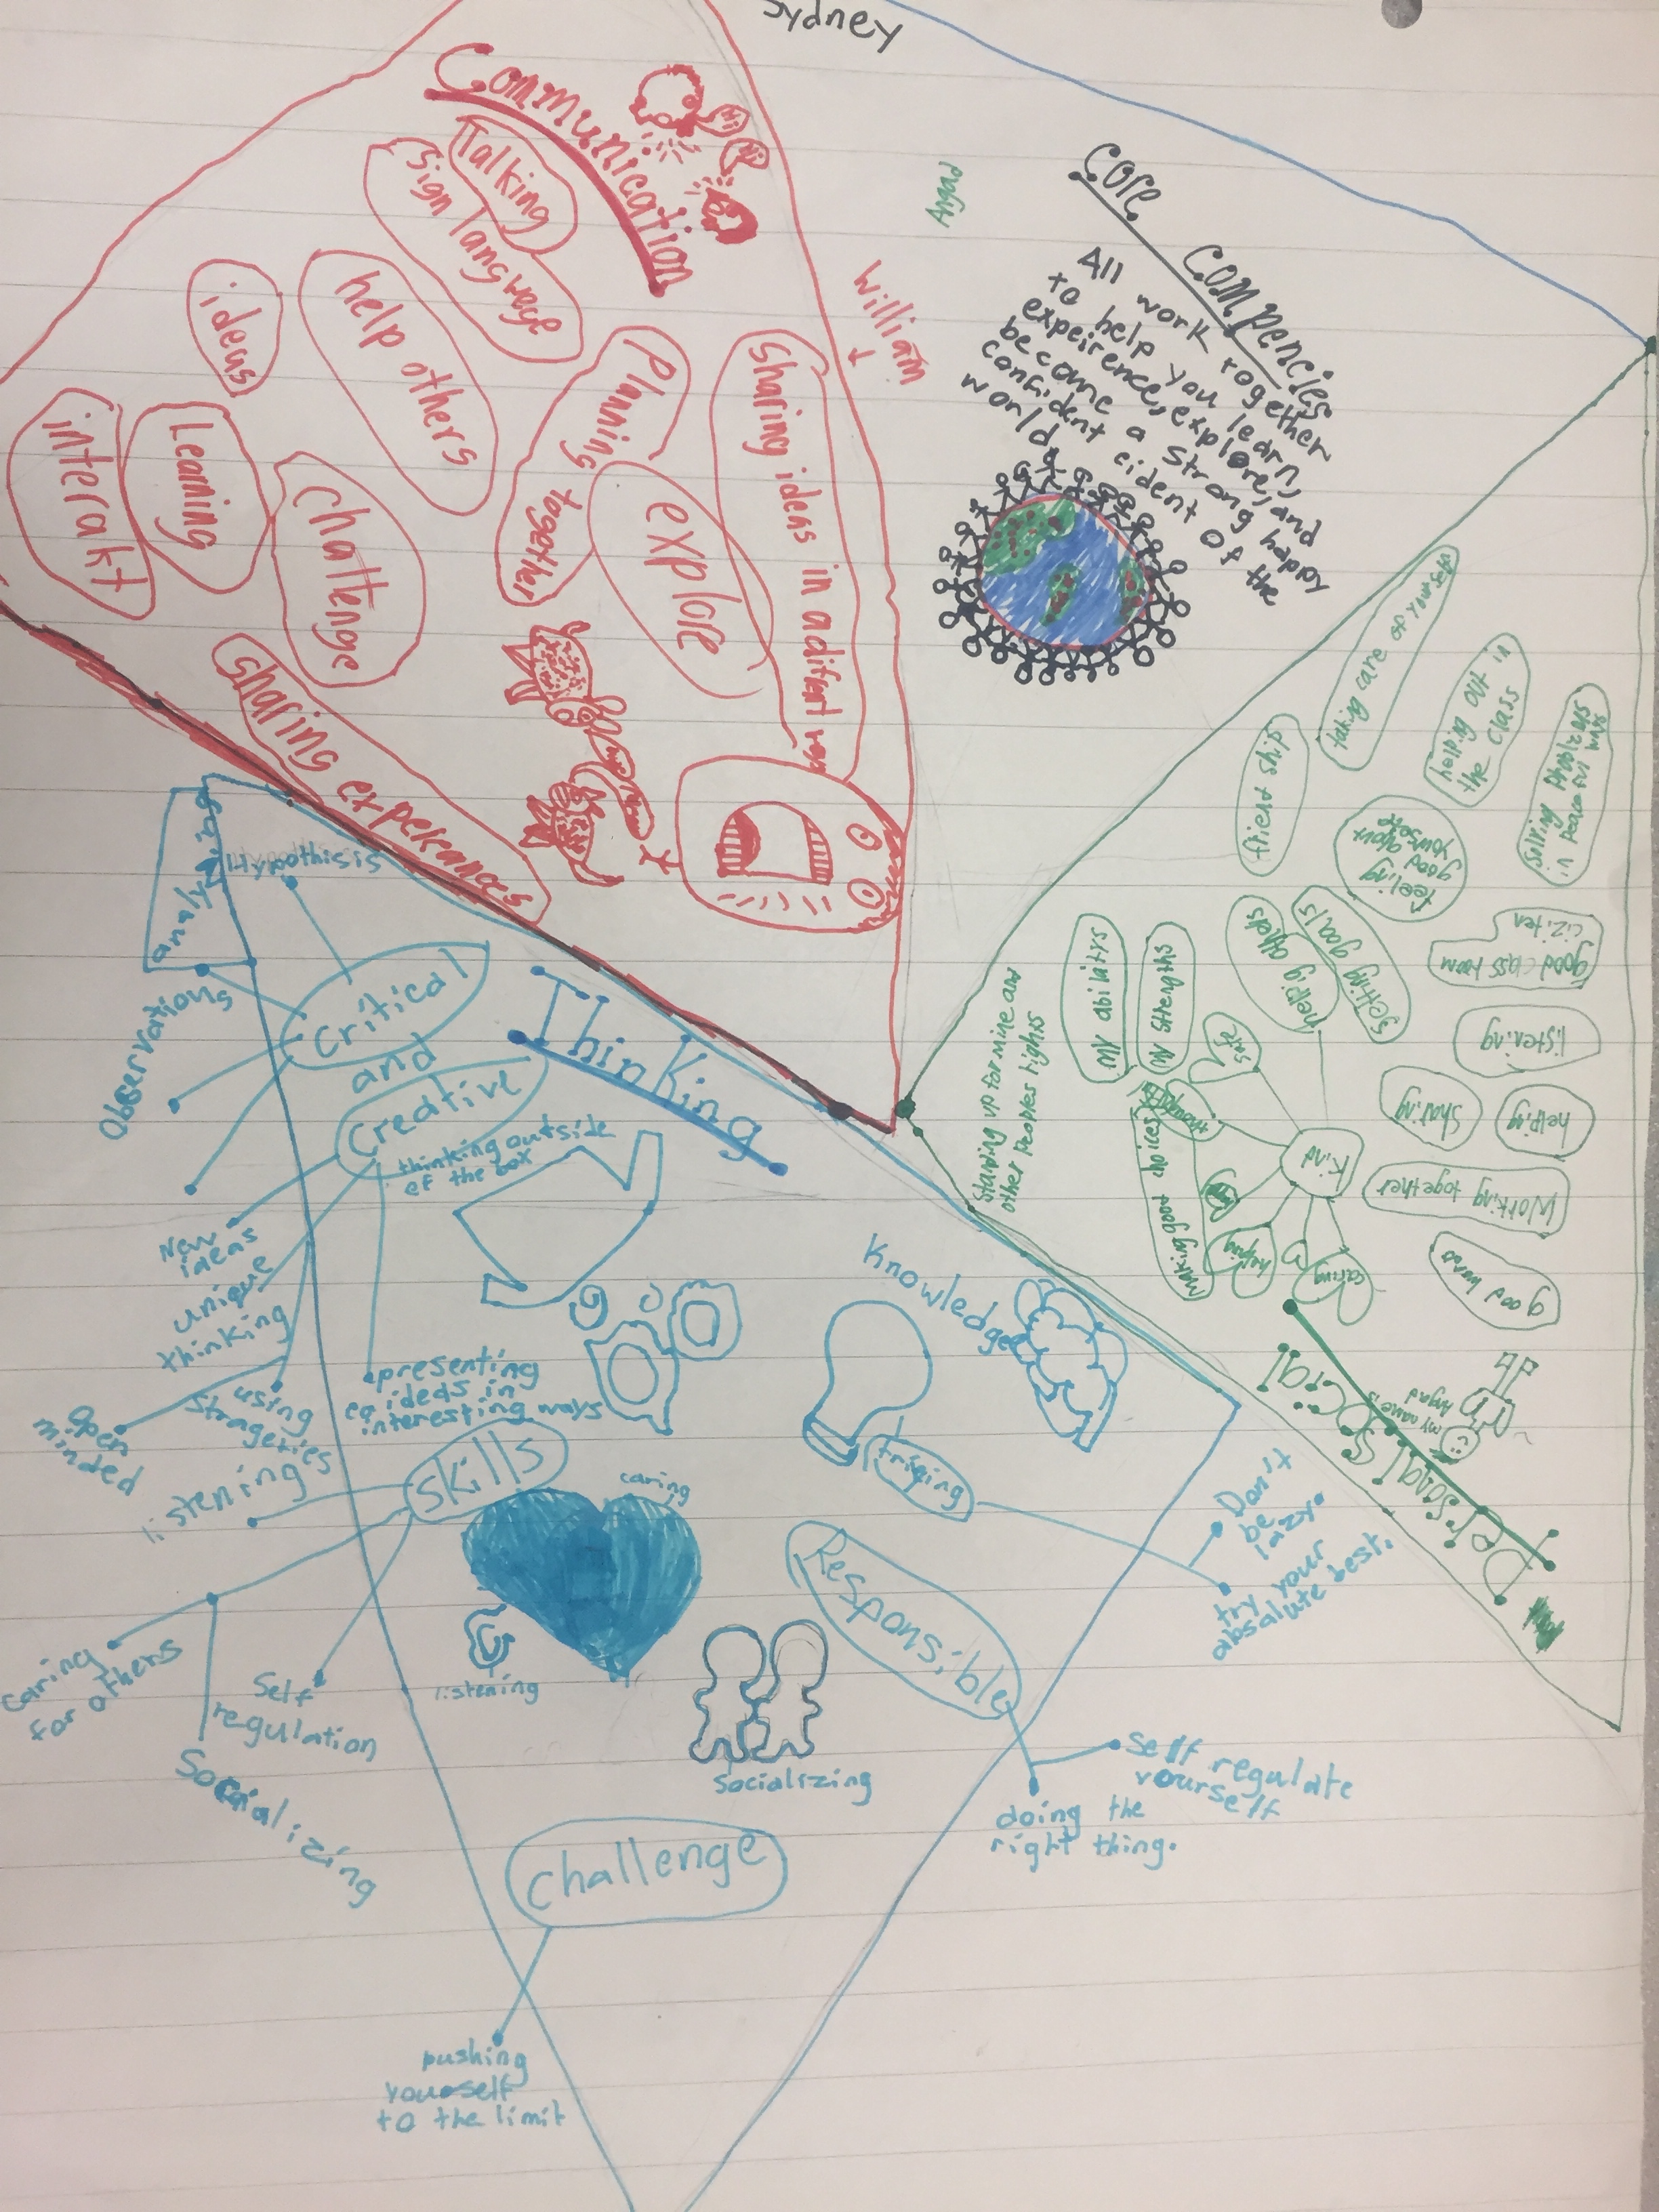 Sydney
Core Compencies
All work together
to help you learn,
expeirence, explore, and
become a strong happy
confident cident of the
world
Angad
William
Communication
Hi
Hi
Talking
Sign langwage
help others
ideas
Learning
interakt
challenge
Planning together
explore
Sharing ideas in a difrent way
sharing expereances
Thinking
Critical
and
Creative
analyzing
Hypothisis
Observations
thinking outside
of the box
New
ideas
unique
thinking
open
minded
using
strageties
presenting
ideas in
interesting ways
Skills
listening
caring
for others
Socializing
Self
regulation
caring
listening
Socializing
Knowledge
triging
Don't
be
lazy.
try your
absolute best.
Responsible
Self regulate
yourself
doing the
right thing.
challenge
pushing
yourself
to the limit
Personal & Social
My name is
Angad
taking care of yourself
helping out in
the class
solving problems
in peaceful ways
friend ship
feeling
good about
yourself
setting goals
helping others
good class room
citizen
listening
sharing
helping
Working together
good
Kind
safe
helping
caring
making good choices
my abilitys
my strengths
Standing up for mine and
other peoples rights